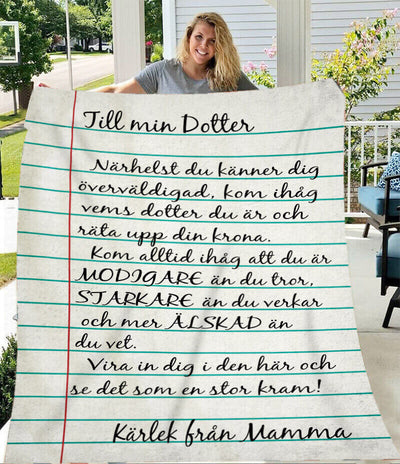 Till min Dotter
Närhelst du känner dig
överväldigad, kom ihåg
vems dotter du är och
räta upp din krona.
Kom alltid ihåg att du är
MODIGARE än du tror,
STARKARE än du verkar
och mer ÄLSKAD än
du vet.
Vira in dig i den här och
se det som en stor kram!
Kärlek från Mamma